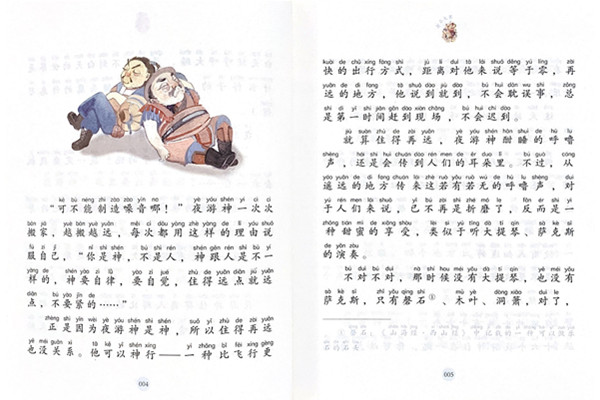 kě bù néng zhì zào zào yīn na yè yóu shén yí cì cì
“可不能制造噪音哪！”夜游神一次次
bān jiā yuè bān yuè yuǎn měi cì dōu yòng zhè yàng de lǐ yóu shuō
搬家，越搬越远，每次都用这样的理由说
fú zì jǐ nǐ shì shén bú shì rén shén gēn rén shì bù yí
服自己，“你是神，不是人，神跟人是不一
yàng de shén yào zì lǜ yào zì jué zhù de yuǎn diǎn jiù yuǎn
样的，神要自律，要自觉，住得远点就远
diǎn bú yào jǐn de
点，不要紧的……”
zhèng shì yīn wèi yè yóu shén shì shén suǒ yǐ zhù de zài yuǎn
正是因为夜游神是神，所以住得再远
yě méi guān xì tā kě yǐ shén xíng yì zhǒng bǐ fēi xíng gèng
也没关系。他可以神行——一种比飞行更
004
kuài de chū xíng fāng shì jù lí duì tā lái shuō děng yú líng zài
快的出行方式，距离对他来说等于零，再
yuǎn de dì fang tā shuō dào jiù dào bú huì dān wu shì zǒng
远的地方，他说到就到，不会耽误事，总
shì dì yī shí jiān gǎn dào xiàn chǎng bú huì chí dào
是第一时间赶到现场，不会迟到。
jiù suàn zhù de zài yuǎn yè yóu shén hān shuì de hū lū
就算住得再远，夜游神酣睡的呼噜
shēng hái shi huì chuán dào rén men de ěr duo li bú guò cóng
声，还是会传到人们的耳朵里。不过，从
yáo yuǎn de dì fang chuán lái zhè ruò yǒu ruò wú de hū lū shēng duì
遥远的地方传来这若有若无的呼噜声，对
yú rén men lái shuō yǐ bú zài shì zhé mó le fǎn ér shì yì
于人们来说，已不再是折磨了，反而是一
zhǒng tián mì de xiǎng shòu lèi sì yú tīng dà tí qín sà kè sī
种甜蜜的享受，类似于听大提琴、萨克斯
de yǎn zòu
的演奏。
bú duì bú duì nà shí hou méi yǒu dà tí qín yě méi yǒu
不对不对，那时候没有大提琴，也没有
sà kè sī zhǐ yǒu qìng shí mù yè dòng xiāo duì le
萨克斯，只有磬石①、木叶、洞箫，对了，
005